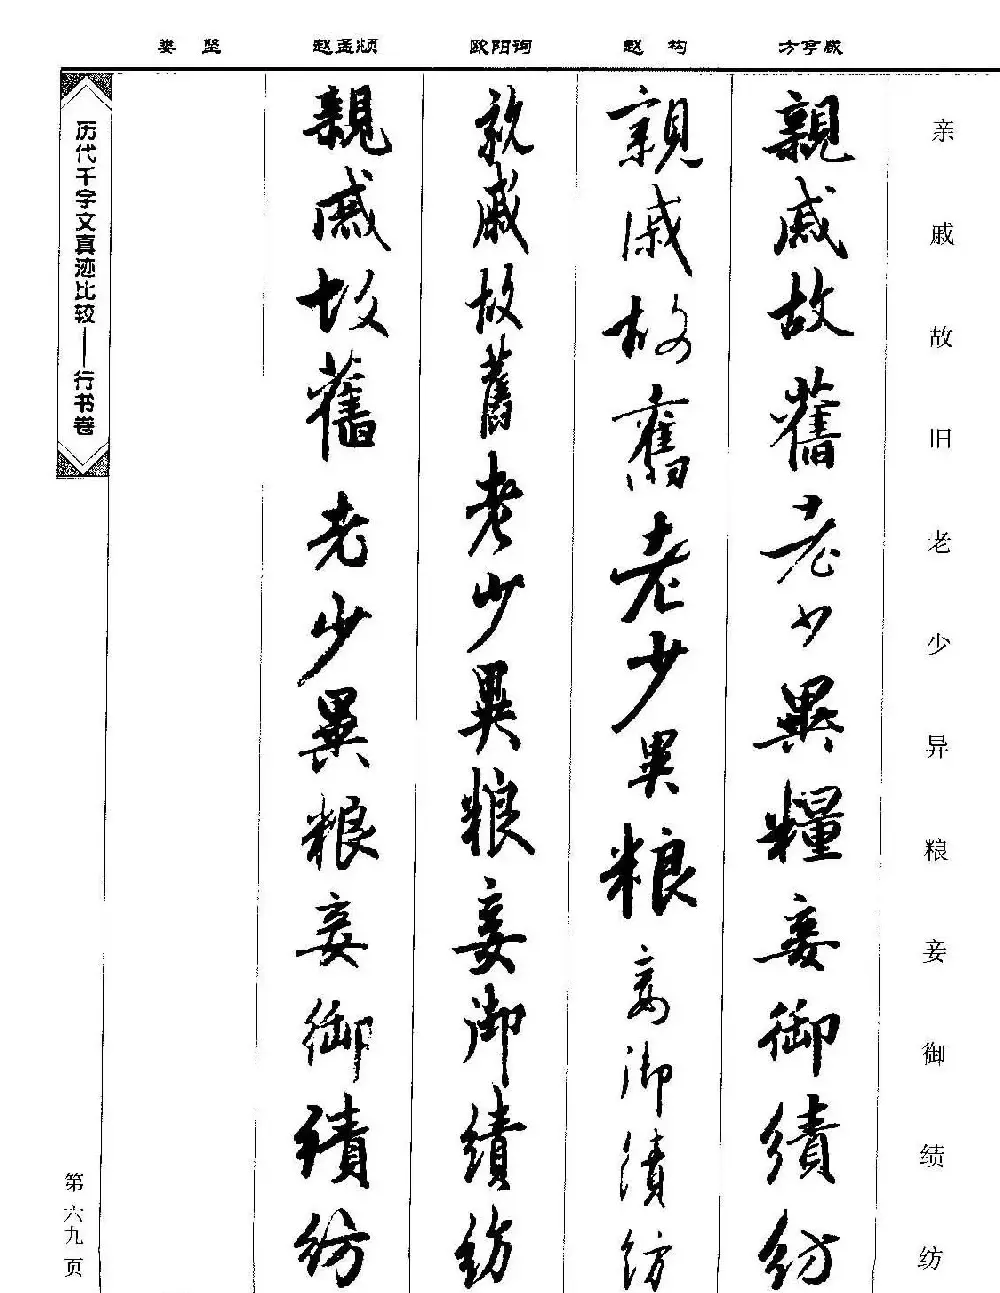 娄 坚 赵孟頫 欧阳询 赵 构 方亨咸
亲戚故旧老少异粮妾御绩纺
親戚故舊老少異糧妾御績紡
親戚故舊老少異粮妾御績紡
親戚故舊老少異粮妾御績紡
親戚故舊老少異粮妾御績紡
历代千字文真迹比较——行书卷
第六九页